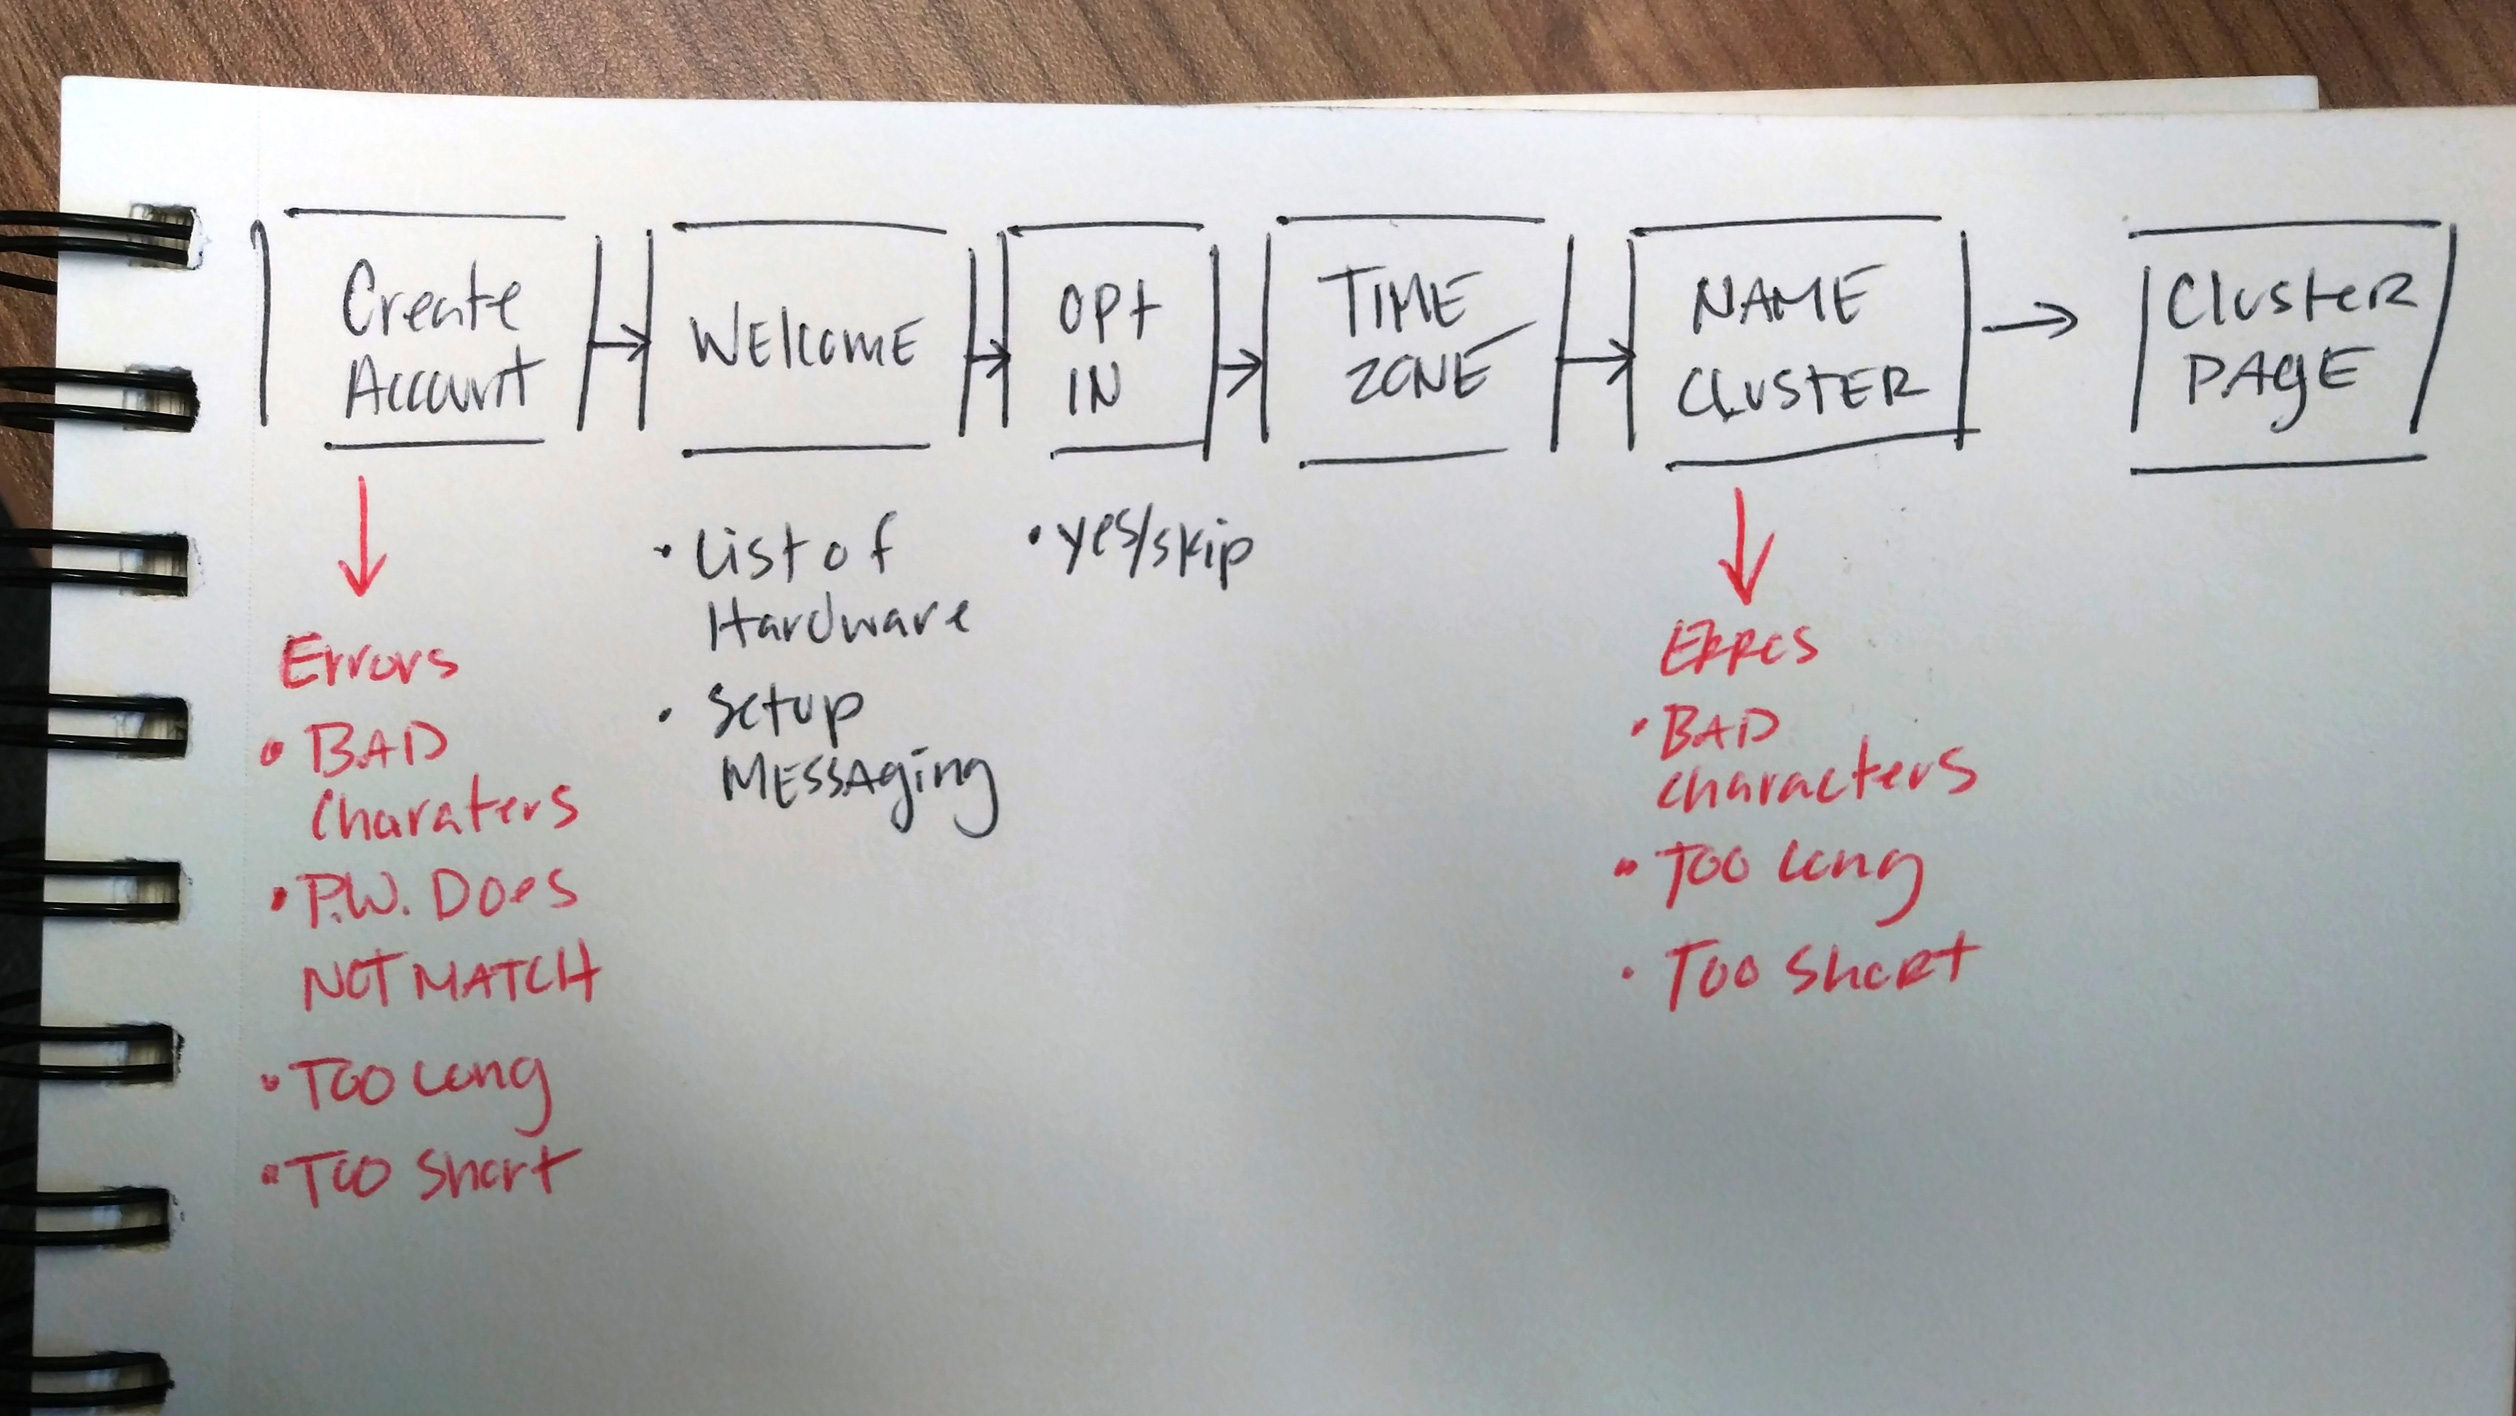 Create
Account
WELCOME
OPT
IN
TIME
ZONE
NAME
CLUSTER
CLUSTER
PAGE
Errors
• BAD
Charaters
• P.W. Does
NOT MATCH
• Too Long
• Too Short
• List of
Hardware
• Setup
MESSAging
• yes/skip
ERRORS
• BAD
characters
• Too Long
• Too Short